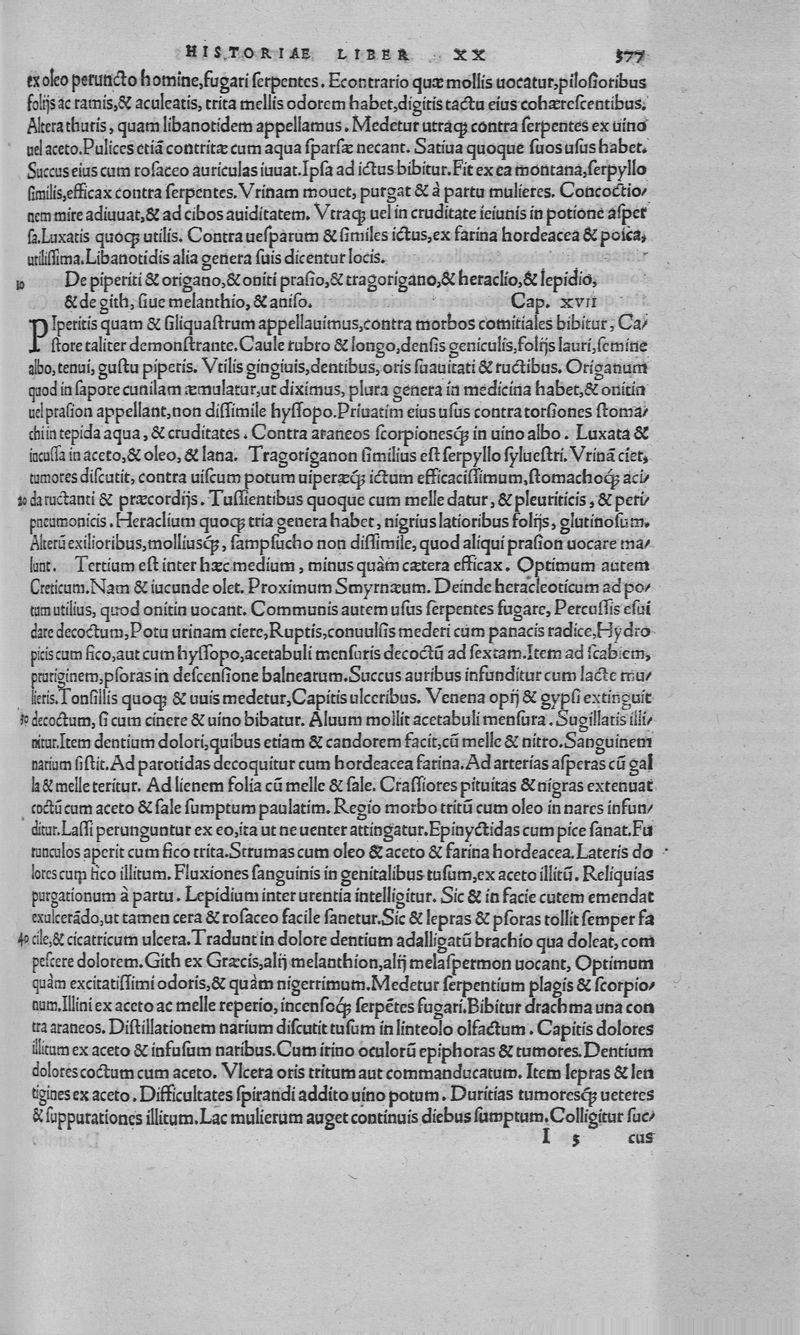 HISTORIAE LIBER XX 577
ex oleo peruncto homine,fugari ſerpentes. Econtrario quæ mollis uocatur,piloſioribus
folijs ac ramis,& aculeatis, trita mellis odorem habet,digitis tactu eius cohæreſcentibus.
Altera thuris, quam libanotidem appellamus. Medetur utraq; contra ſerpentes ex uino
uel aceto. Pulices etiã contritæ cum aqua ſparſæ necant. Satiua quoque ſuos uſus habet.
Succus eius cum roſaceo auriculas iuuat. Ipſa ad ictus bibitur. Fit ex ea montana,ſerpyllo
ſimilis,efficax contra ſerpentes. Vrinam mouet, purgat & à partu mulieres. Concoctio/
nem mire adiuuat,& ad cibos auiditatem. Vtraq; uel in cruditate ieiunis in potione aſper
ſa. Luxatis quoq; utilis. Contra ueſparum & ſimiles ictus,ex farina hordeacea & poſca,
utiliſſima. Libanotidis alia genera ſuis dicentur locis.
10 De piperiti & origano,& oniti praſio,& tragorigano,& heraclio,& lepidio,
& de gith, ſiue melanthio, & aniſo. Cap. xvii
PIperitis quam & ſiliquaſtrum appellauimus,contra morbos comitiales bibitur, Ca/
ſtore taliter demonſtrante. Caule rubro & longo,denſis geniculis,folijs lauri,ſemine
albo, tenui, guſtu piperis. Vtilis gingiuis,dentibus, oris ſuauitati & ructibus. Origanum
quod in ſapore cunilam æmulatur,ut diximus, plura genera in medicina habet,& onitin
uel praſion appellant,non diſſimile hyſſopo. Priuatim eius uſus contra torſiones ſtoma/
chi in tepida aqua, & cruditates. Contra araneos ſcorpionesq; in uino albo. Luxata &
incuſſa in aceto,& oleo, & lana. Tragoriganon ſimilius eſt ſerpyllo ſylueſtri. Vrinã ciet,
tumores diſcutit, contra uiſcum potum uiperæq; ictum efficaciſſimum,ſtomachoq; aci/
20 da ructanti & præcordijs. Tuſſientibus quoque cum melle datur, & pleuriticis, & peri/
pneumonicis. Heraclium quoq; tria genera habet, nigrius latioribus folijs, glutinoſum.
Alterũ exilioribus,molliusq;, ſampſucho non diſſimile, quod aliqui praſion uocare ma/
lunt. Tertium eſt inter hæc medium, minus quàm cætera efficax. Optimum autem
Creticum. Nam & iucunde olet. Proximum Smyrnæum. Deinde heracleoticum ad po/
tum utilius, quod onitin uocant. Communis autem uſus ſerpentes fugare, Percuſſis eſui
dare decoctum,Potu urinam ciere,Ruptis,conuulſis mederi cum panacis radice,Hydro
picis cum fico,aut cum hyſſopo,acetabuli menſuris decoctũ ad ſextam. Item ad ſcabiem,
pruriginem,pſoras in deſcenſione balnearum. Succus auribus infunditur cum lacte mu/
lieris. Tonſillis quoq; & uuis medetur,Capitis ulceribus. Venena opij & gypſi extinguit
30 decoctum, ſi cum cinere & uino bibatur. Aluum mollit acetabuli menſura. Sugillatis illi/
nitur. Item dentium dolori,quibus etiam & candorem facit,cũ melle & nitro. Sanguinem
narium ſiſtit. Ad parotidas decoquitur cum hordeacea farina. Ad arterias aſperas cũ gal
la & melle teritur. Ad lienem folia cũ melle & ſale. Craſſiores pituitas & nigras extenuat
coctũ cum aceto & ſale ſumptum paulatim. Regio morbo tritũ cum oleo in nares infun/
ditur. Laſſi perunguntur ex eo,ita ut ne uenter attingatur. Epinyctidas cum pice ſanat. Fu
runculos aperit cum fico trita. Strumas cum oleo & aceto & farina hordeacea. Lateris do
lores cum fico illitum. Fluxiones ſanguinis in genitalibus tuſum,ex aceto illitũ. Reliquias
purgationum à partu. Lepidium inter urentia intelligitur. Sic & in facie cutem emendat
exulcerãdo,ut tamen cera & roſaceo facile ſanetur. Sic & lepras & pſoras tollit ſemper fa
40 cile,& cicatricum ulcera. Tradunt in dolore dentium adalligatũ brachio qua doleat, com
peſcere dolorem. Gith ex Græcis,alij melanthion,alij melaſpermon uocant, Optimum
quàm excitatiſſimi odoris,& quàm nigerrimum. Medetur ſerpentium plagis & ſcorpio/
num. Illini ex aceto ac melle reperio, incenſoq; ſerpẽtes fugari. Bibitur drachma una con
tra araneos. Diſtillationem narium diſcutit tuſum in linteolo olfactum. Capitis dolores
illitum ex aceto & infuſum naribus. Cum irino oculorũ epiphoras & tumores. Dentium
dolores coctum cum aceto. Vlcera oris tritum aut commanducatum. Item lepras & len
tigines ex aceto. Difficultates ſpirandi addito uino potum. Duritias tumoresq; ueteres
& ſuppurationes illitum. Lac mulierum auget continuis diebus ſumptum. Colligitur ſuc/
I 5 cus